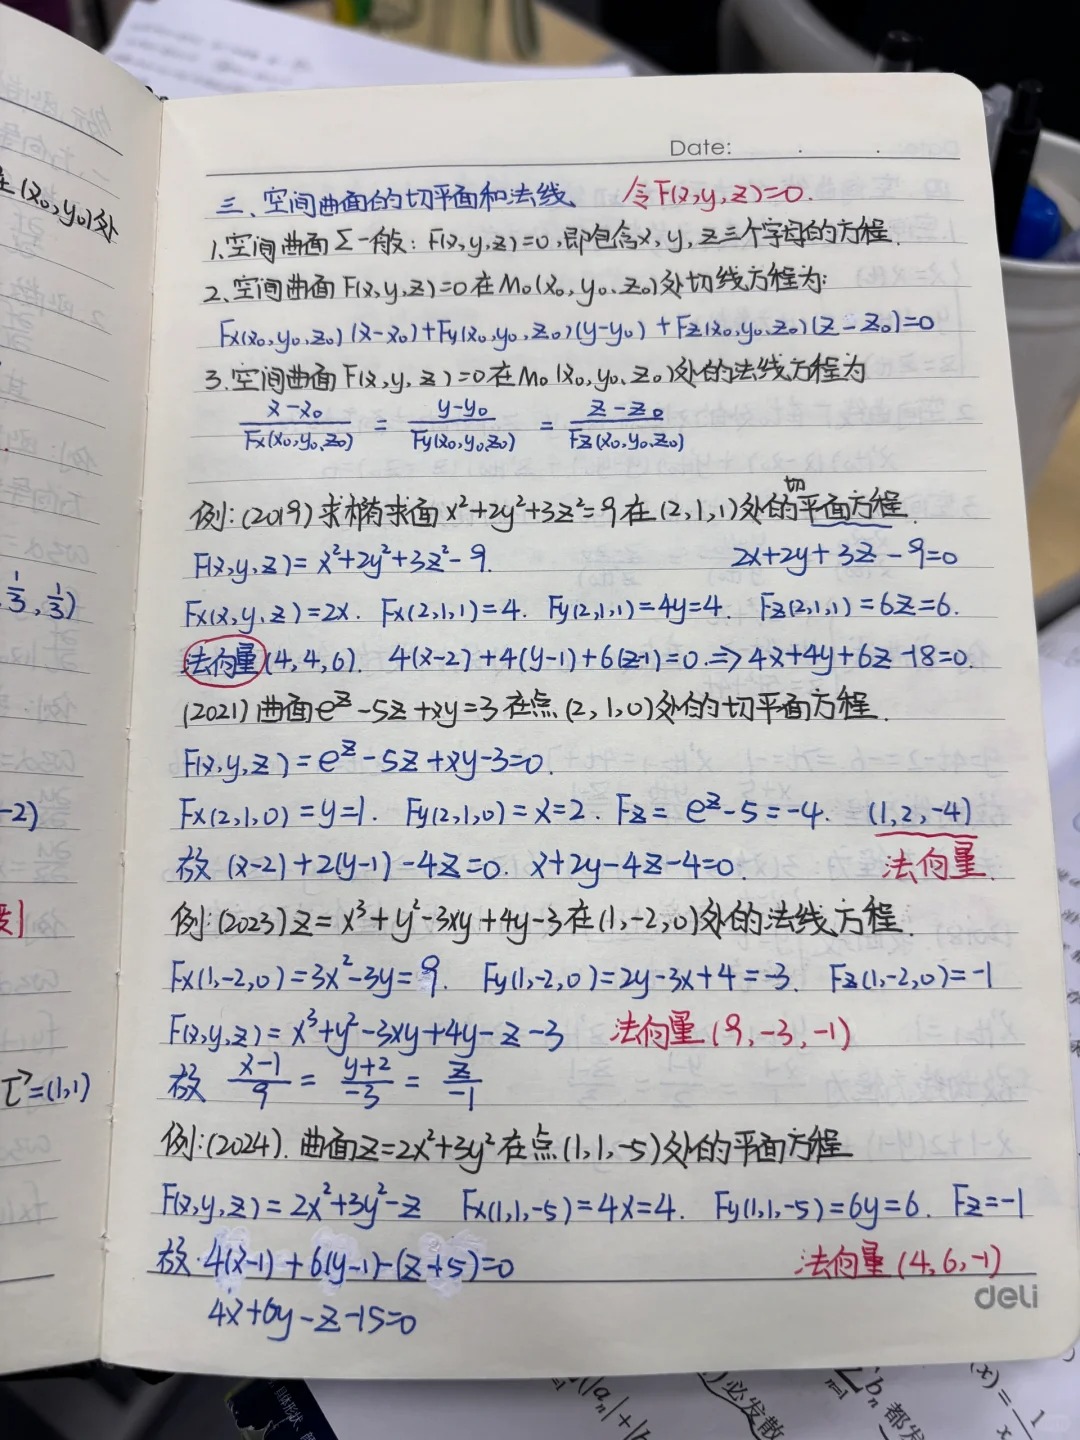 Date: . .
三、空间曲面的切平面和法线 令F(x,y,z)=0.
1.空间曲面Σ一般: F(x,y,z)=0,即包含x,y,z三个字母的方程.
2、空间曲面F(x,y,z)=0在M₀(x₀,y₀,z₀)处切线方程为:
Fx(x₀,y₀,z₀)(x-x₀)+Fy(x₀,y₀,z₀)(y-y₀)+Fz(x₀,y₀,z₀)(z-z₀)=0
3.空间曲面F(x,y,z)=0在M₀(x₀,y₀,z₀)处的法线方程为
(x-x₀)/Fx(x₀,y₀,z₀) = (y-y₀)/Fy(x₀,y₀,z₀) = (z-z₀)/Fz(x₀,y₀,z₀)
例:(2019)求椭求面x²+2y²+3z²=9在(2,1,1)处的切平面方程.
F(x,y,z)=x²+2y²+3z²-9. 2x+2y+3z-9=0
Fx(x,y,z)=2x. Fx(2,1,1)=4. Fy(2,1,1)=4y=4. Fz(2,1,1)=6z=6.
法向量(4,4,6). 4(x-2)+4(y-1)+6(z-1)=0.⇒4x+4y+6z-18=0.
(2021)曲面e^z-5z+xy=3在点(2,1,0)处的切平面方程.
F(x,y,z)=e^z-5z+xy-3=0.
Fx(2,1,0)=y=1. Fy(2,1,0)=x=2. Fz=e^z-5=-4. (1,2,-4)
故(x-2)+2(y-1)-4z=0. x+2y-4z-4=0. 法向量.
例:(2023)z=x³+y²-3xy+4y-3在(1,-2,0)处的法线方程.
Fx(1,-2,0)=3x²-3y=9. Fy(1,-2,0)=2y-3x+4=-3. Fz(1,-2,0)=-1
F(x,y,z)=x³+y²-3xy+4y-z-3 法向量(9,-3,-1)
故 (x-1)/9 = (y+2)/-3 = z/-1
例:(2024).曲面z=2x²+3y²在点(1,1,-5)处的平面方程
F(x,y,z)=2x²+3y²-z Fx(1,1,-5)=4x=4. Fy(1,1,-5)=6y=6. Fz=-1
故.4(x-1)+6(y-1)-(z+5)=0 法向量(4,6,-1)
4x+6y-z-15=0
deli
(x₀,y₀)处
1/3,1/3)
-2)
τ=(1,1)
必发散
都发